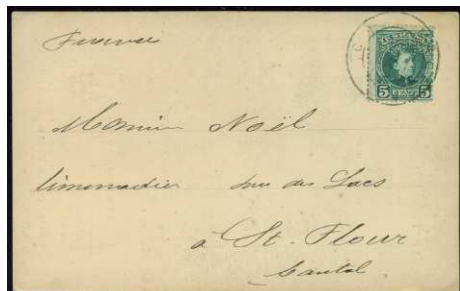 France
5 5
Monsieur Noël
limonadier rue des Lacs
à St. Flour
Cantal